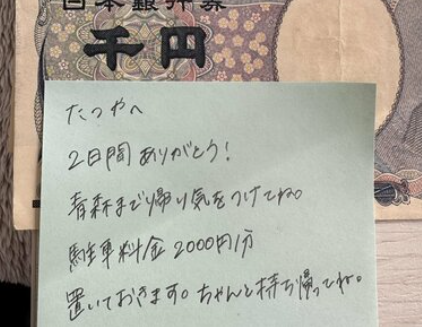 日本銀行券
千円
たつやへ
2日間ありがとう!
青森まで帰り気をつけてね。
駐車料金2000円分
置いておきます。ちゃんと持ち帰ってね。